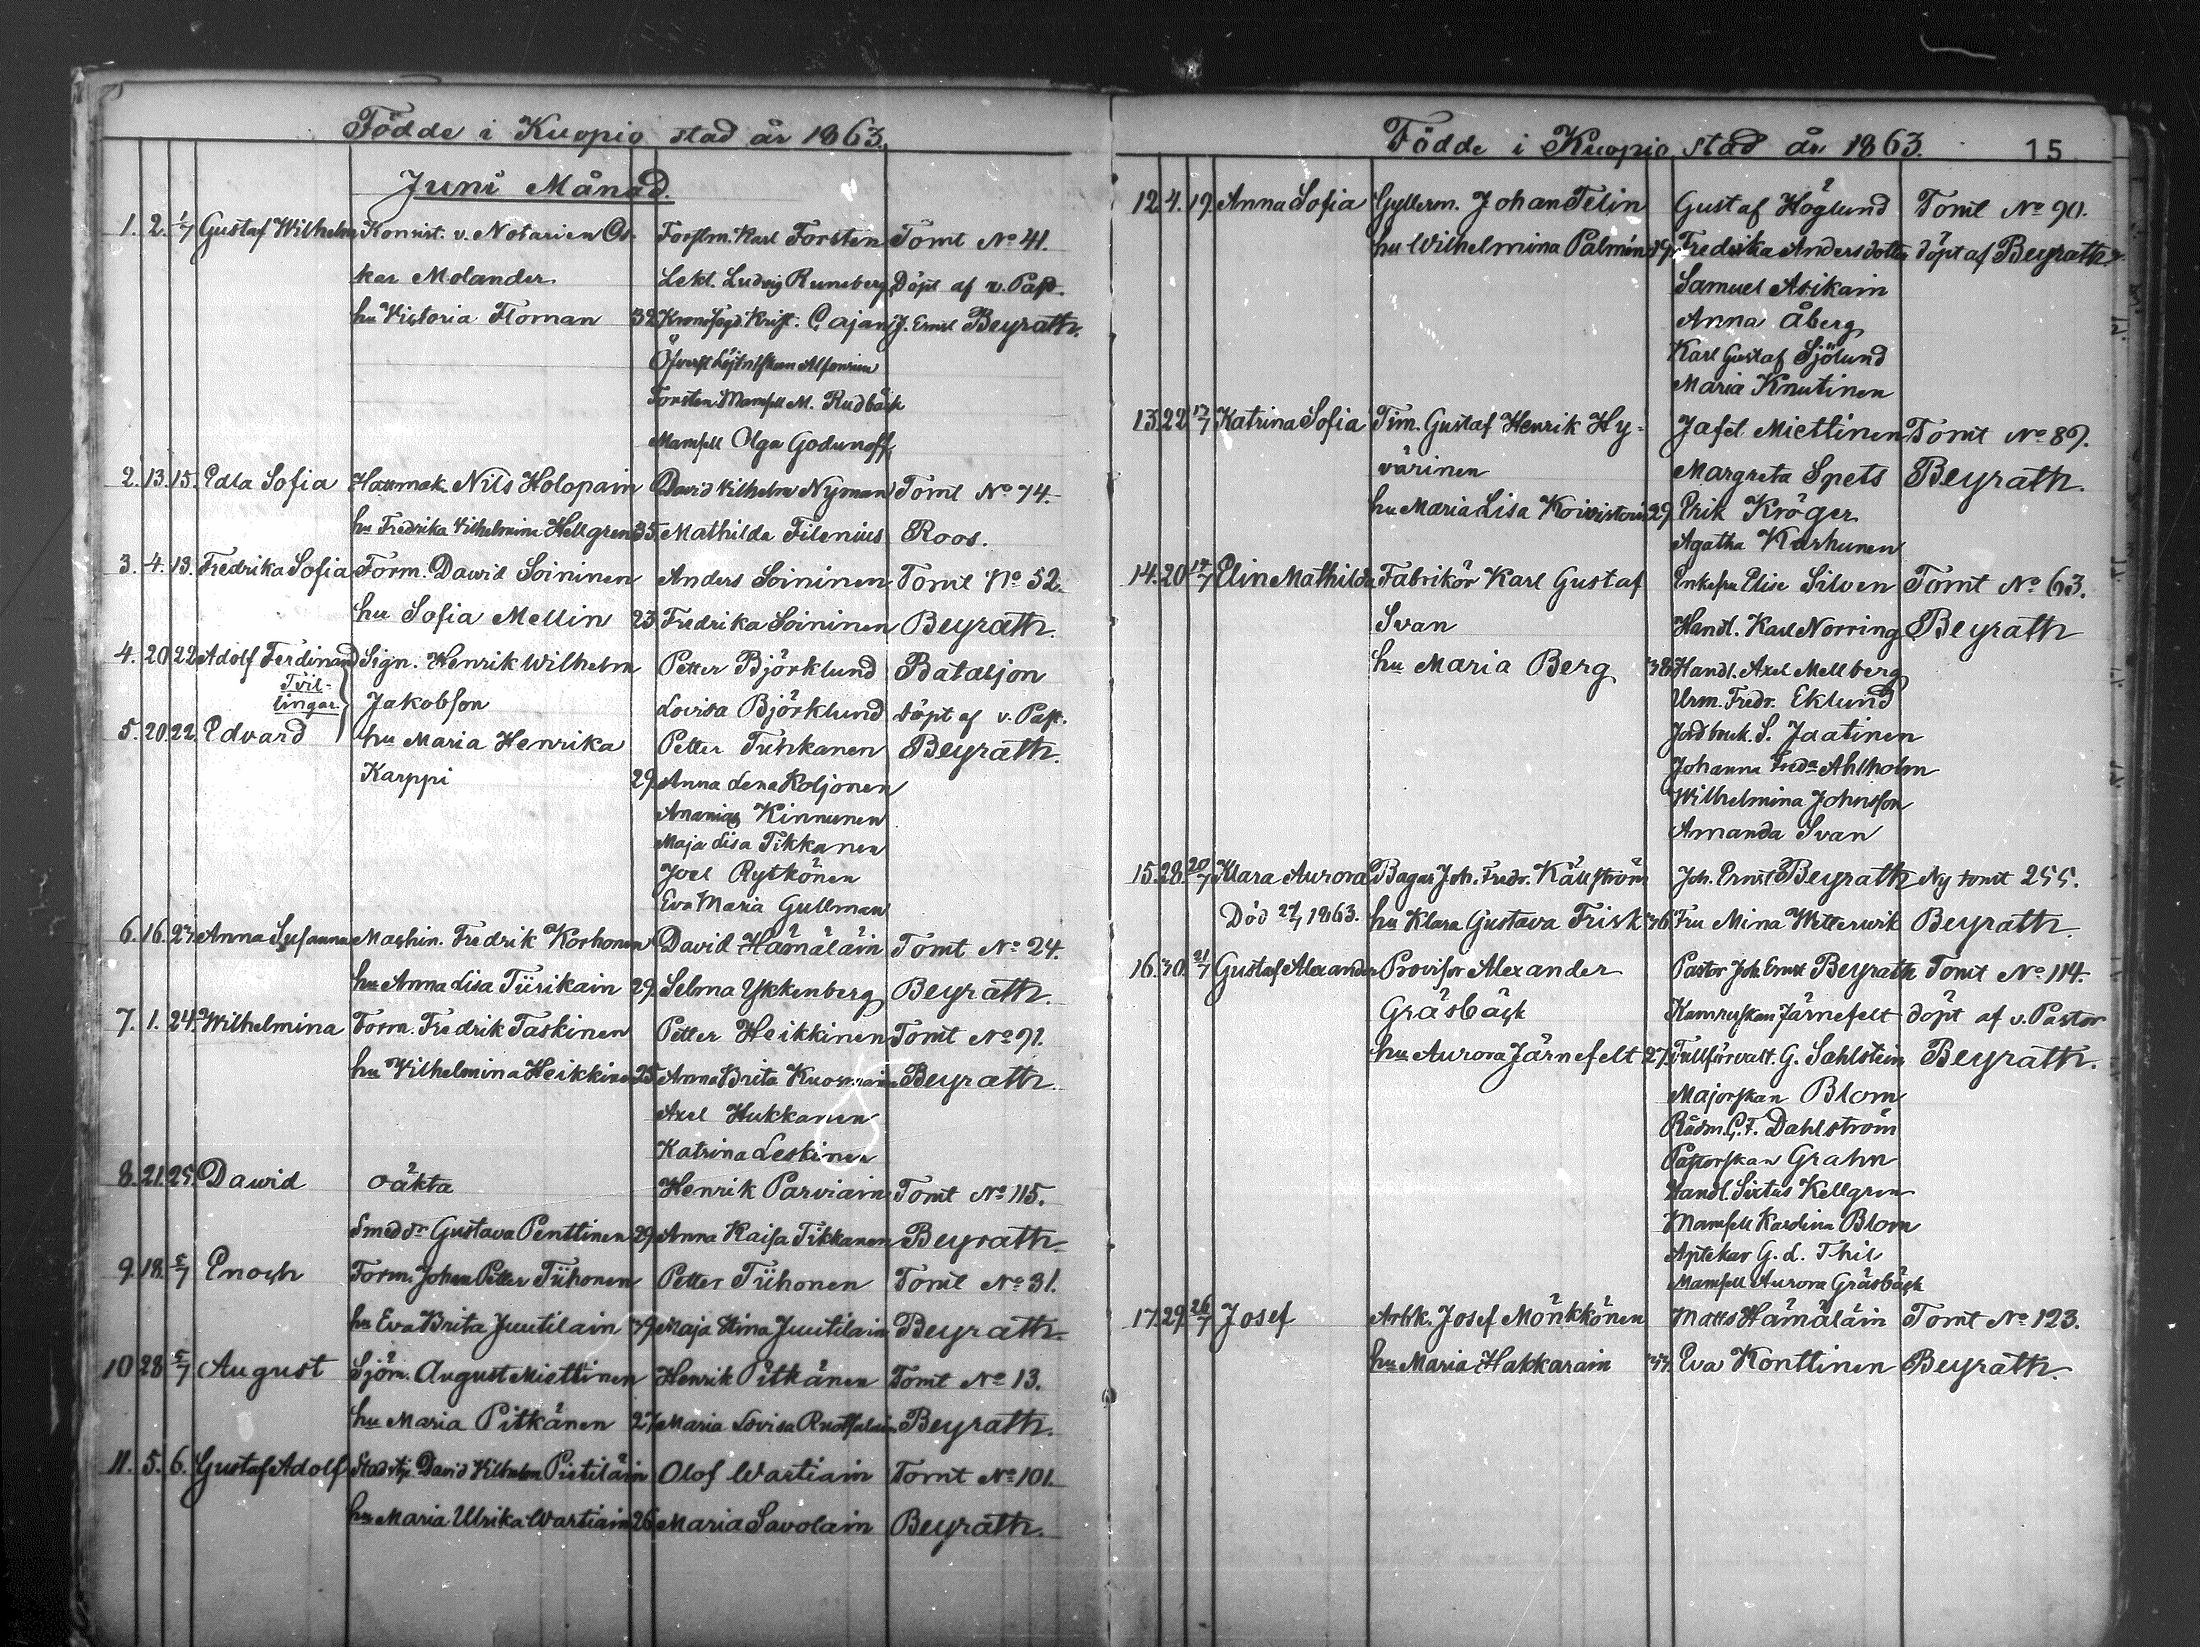 Födde i Kuopio stad år 1863.
Juni Månad.
1. 2. 1/7 Gustaf Wilhelm Konsist. v. Notarien Os- Forstm. Karl Forsten Tomt No 41.
ker Molander Lekt. Ludvig Runeberg Döpt af v. Past.
hu Victoria Floman 32 Kronofogd. Krist. Cajan J. Ernst Beyrath.
Öfverst Löjtn:skan Alfonsina
Forsten Mamsell M. Rudbäck
Mamsell Olga Godunoff
2. 13. 15. Edla Sofia Hattmak. Nils Holopain David Vilhelm Nyman Tomt No 74.
hu Fredrika Vilhelmina Hellgren 35. Mathilda Filenius Roos.
3. 4. 13. Fredrika Sofia Form. Dawid Soininen Anders Soininen Tomt No 52.
hu Sofia Mellin 23 Fredrika Soininen Beyrath.
4. 20. 22. Adolf Ferdinand Sign. Henrik Wilhelm Petter Björklund Bataljon
Tvil-
lingar Jakobson Lovisa Björklund döpt af v. Past.
5. 20. 22. Edvard hu Maria Henrika Petter Tuhkanen Beyrath.
Karppi 29. Anna Lena Koljonen
Ananias Kinnunen
Maja Lisa Tikkanen
Joel Rytkönen
Eva Maria Gullman
6. 16. 23. Anna Susanna Maschin. Fredrik Korhonen David Hämäläin Tomt No 24.
hu Anna Lisa Tiirikain 29. Selma Ykkenberg Beyrath.
7. 1. 24. Wilhelmina Form. Fredrik Taskinen Petter Heikkinen Tomt No 91.
hu Vilhelmina Heikkinen 25. Anna Brita Kuosmain Beyrath.
Axel Hukkanen
Katrina Leskinen
8. 21. 25. Dawid oäkta Henrik Parviain Tomt No 115.
Smed dr Gustava Penttinen 29. Anna Kaisa Tikkanen Beyrath.
9. 18. 5/7 Enoch Form. Johan Petter Tiihonen Petter Tiihonen Tomt No 31.
hu Eva Brita Juutilain 39 Maja Stina Juutilain Beyrath.
10 28 5/7 August Sjöm. August Miettinen Henrik Pitkänen Tomt No 13.
hu Maria Pitkänen 27. Maria Lovisa Ruotsalain Beyrath.
11. 5. 6. Gustaf Adolf David Vilhelm Pietiläin Olof Wartiain Tomt No 101.
hu Maria Ulrika Wartiain 26 Maria Savolain Beyrath.
Födde i Kuopio stad år 1863. 15
12. 4. 19. Anna Sofia Gyllerm. Johan Felin Gustaf Höglund Tomt No 90.
hu Wilhelmina Palmén 39. Fredrika Andersdotter döpt af Beyrath.
Samuel Asikain
Anna Åberg
Karl Gustaf Sjölund
Maria Knutinen
13. 22. 17/7 Katrina Sofia Tim. Gustaf Henrik Hy- Jafet Miettinen Tomt No 89.
värinen Margreta Spets Beyrath.
hu Maria Lisa Koivistoin 29. Erik Kröger
Agatha Karhunen
14. 20 17/7 Elin Mathilda Fabrikör Karl Gustaf Enkefru Elise Silven Tomt No 63.
Svan Handl. Karl Norring Beyrath
hu Maria Berg 38. Handl. Axel Mellberg
Urm. Fredr. Eklund
Jordbruk. S. Jaatinen
Johanna Freda Ahlholm
Wilhelmina Johnsson
Amanda Svan
15. 28. 20/7 Klara Aurora Bagar Joh. Fredr. Källström Joh. Ernst Beyrath Ny tomt 255.
Död 1863. hu Klara Gustava Frisk 36. Fru Mina Wetterwik Beyrath.
16. 30. 21/7 Gustaf Alexander Provisor Alexander Pastor Joh. Ernst Beyrath Tomt No 114.
Gräsbäck Kamrerskan Järnefelt döpt af v. Pastor
hu Aurora Järnefelt 27. Tullförvalt. G. Sahlstein Beyrath.
Majorskan Blom
Rådm. C. F. Dahlström
Pastorskan Grahn
Handl. Sixtus Kellgren
Mamsell Karolina Blom
Aptekar G. A. Thil
Mamsell Aurora Gräsbäck
17. 29. 26/7 Josef Arbk. Josef Mönkkönen Matts Hämäläin Tomt No 123.
hu Maria Hakkarain 33. Eva Konttinen Beyrath.